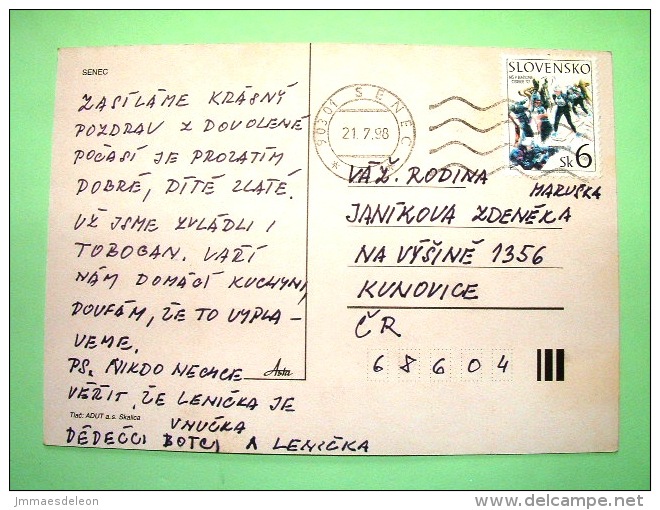 SENEC
ZASÍLÁME KRÁSNÝ
POZDRAV Z DOVOLENÉ
POČASÍ JE PROZATÍM
DOBRÉ, DÍTĚ ZLATÉ.
UŽ JSME ZVLÁDLI I
TOBOGAN. VAŘÍ
NÁM DOMÁCÍ KUCHYNI,
DOUFÁM, ŽE TO VYPLA-
VEME.
PS. NIKDO NECHCE
VĚŘIT, ŽE LENIČKA JE
VNUČKA
DĚDEČCI BOTCI A LENIČKA
Tlač: ADUT a.s. Skalica
Asta
903 01 SENEC
21.7.98
SLOVENSKO
Sk 6
VÁŽ. RODINA
MARUŠKA
JANÍKOVA ZDENĚKA
NA VÝŠINĚ 1356
KUNOVICE
ČR
68604
jmmaesdeleon
delcampe.net